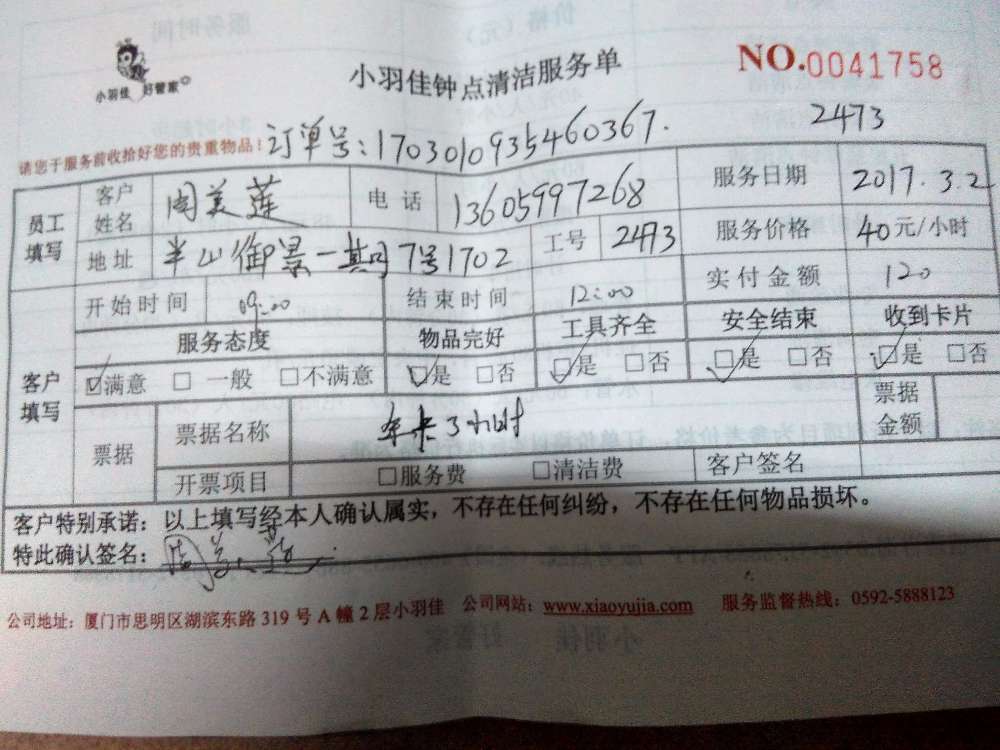 小羽佳 好管家
小羽佳钟点清洁服务单
NO.0041758
请您于服务前收拾好您的贵重物品！ 订单号：1703010935460367. 2473
员工填写 客户姓名 周美莲 电话 13605997268 服务日期 2017.3.2
地址 半山御景一期7号1702 工号 2473 服务价格 40元/小时
客户填写 开始时间 09:00 结束时间 12:00 实付金额 120
服务态度 物品完好 工具齐全 安全结束 收到卡片
☑满意 □一般 □不满意 ☑是 □否 ☑是 □否 ☑是 □否 ☑是 □否
票据 票据名称 3小时 票据金额
开票项目 □服务费 □清洁费 客户签名
客户特别承诺：以上填写经本人确认属实，不存在任何纠纷，不存在任何物品损坏。
特此确认签名：周美莲
公司地址：厦门市思明区湖滨东路 319 号 A 幢 2 层小羽佳 公司网站：www.xiaoyujia.com 服务监督热线：0592-5888123